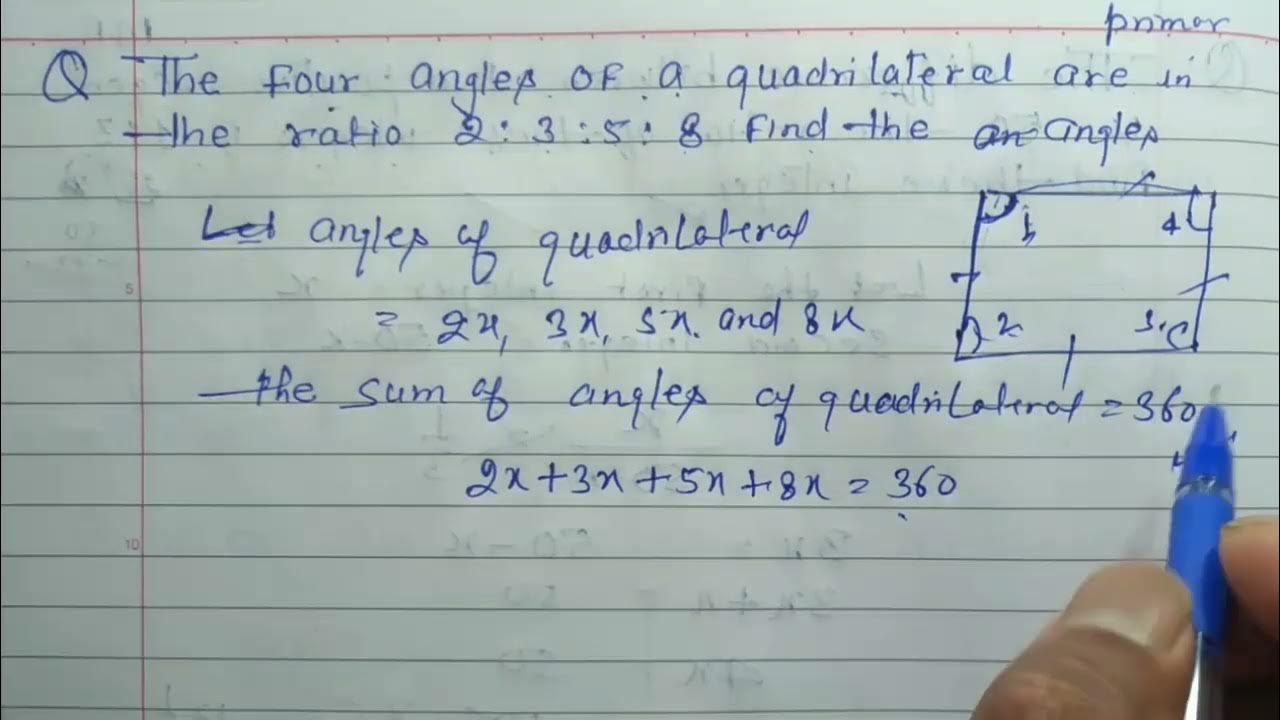 primar
Q The four angles of a quadrilateral are in
the ratio 2:3:5:8 Find the an angles
Let angles of quadrilateral
= 2x, 3x, 5x. and 8x
The sum of angles of quadrilateral = 360
2x+3x+5x+8x = 360
1 4
2 3
5
10